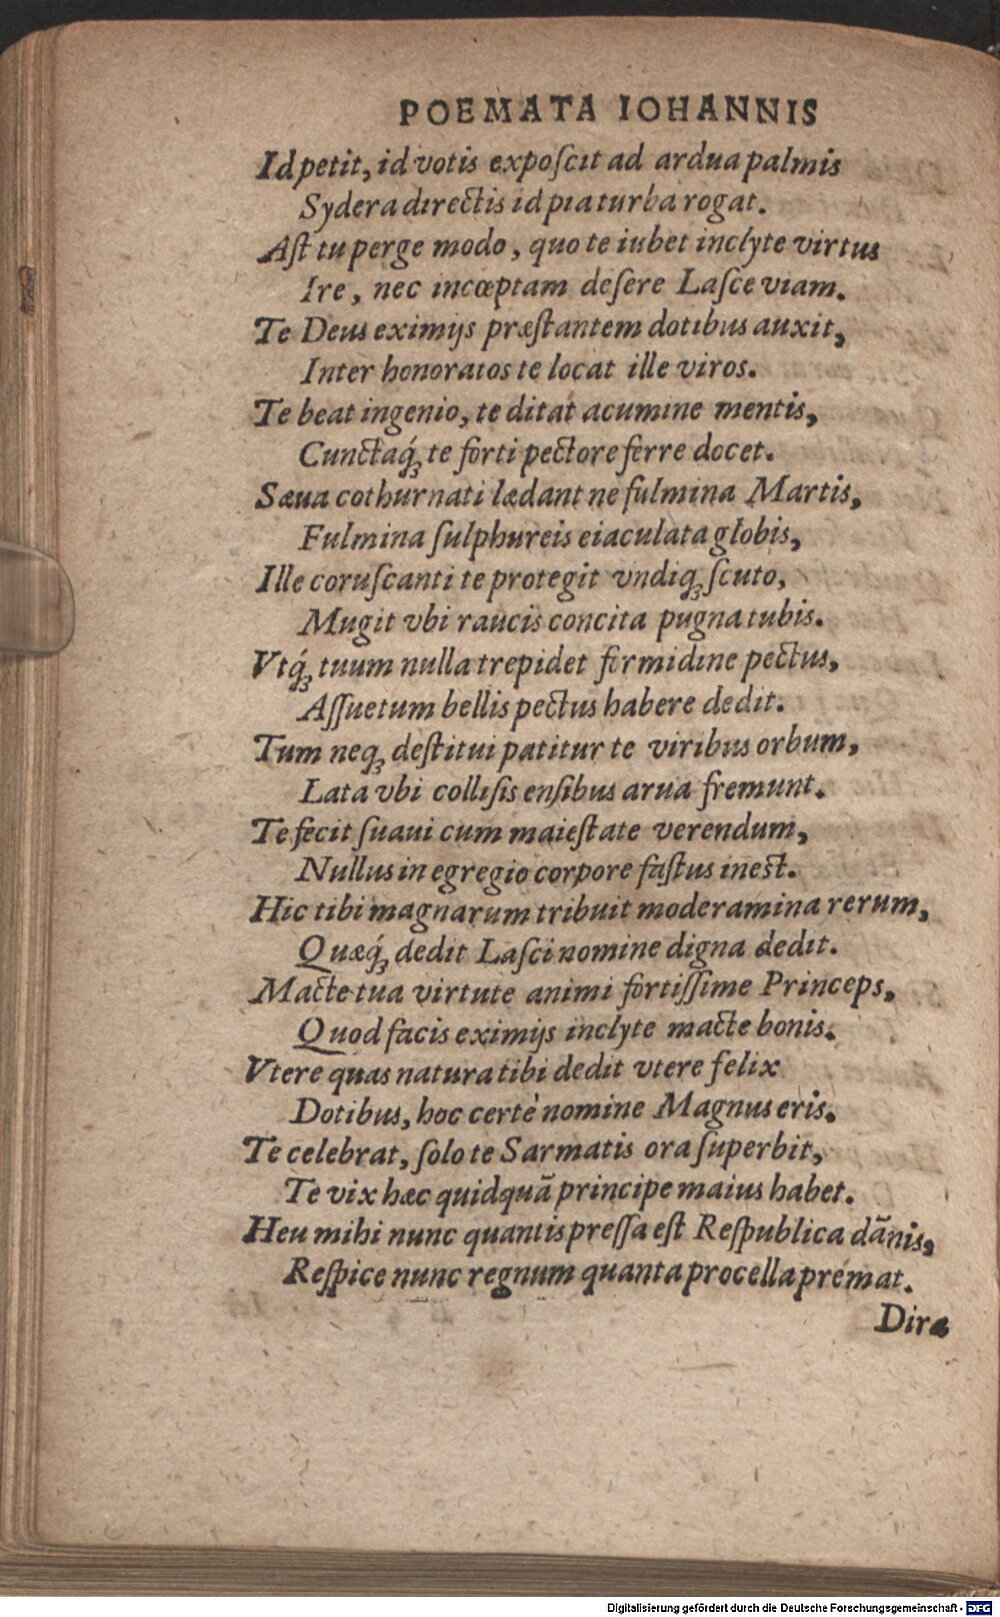 POEMATA IOHANNIS
Id petit, id votis expoſcit ad ardua palmis
Sydera directis id pia turba rogat.
Aſt tu perge modo, quo te iubet inclyte virtus
Ire, nec incœptam deſere Laſce viam.
Te Deus eximijs præſtantem dotibus auxit,
Inter honoratos te locat ille viros.
Te beat ingenio, te ditat acumine mentis,
Cunctaq́ꝫ te forti pectore ferre docet.
Sæua cothurnati lædant ne fulmina Martis,
Fulmina ſulphureis eiaculata globis,
Ille coruſcanti te protegit vndiqꝫ ſcuto,
Mugit vbi raucis concita pugna tubis.
Vtq́ꝫ tuum nulla trepidet formidine pectus,
Aſſuetum bellis pectus habere dedit.
Tum neqꝫ deſtitui patitur te viribus orbum,
Lata vbi colliſis enſibus arua fremunt.
Te fecit ſuaui cum maieſtate verendum,
Nullus in egregio corpore faſtus ineſt.
Hic tibi magnarum tribuit moderamina rerum,
Quæq́ꝫ dedit Laſci nomine digna dedit.
Macte tua virtute animi fortiſſime Princeps,
Quod facis eximijs inclyte macte bonis.
Vtere quas natura tibi dedit vtere felix
Dotibus, hoc certè nomine Magnus eris.
Te celebrat, ſolo te Sarmatis ora ſuperbit,
Te vix hæc quidquā principe maius habet.
Heu mihi nunc quantis preſſa eſt Reſpublica dānis,
Reſpice nunc regnum quanta procella premat.
Diræ
Digitalisierung gefördert durch die Deutsche Forschungsgemeinschaft - DFG